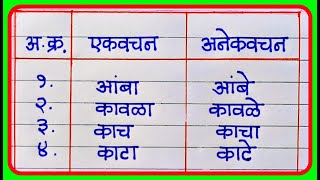 अ.क्र. एकवचन अनेकवचन
१. आंबा आंबे
२. कावळा कावळे
३. काच काचा
४. काटा काटे